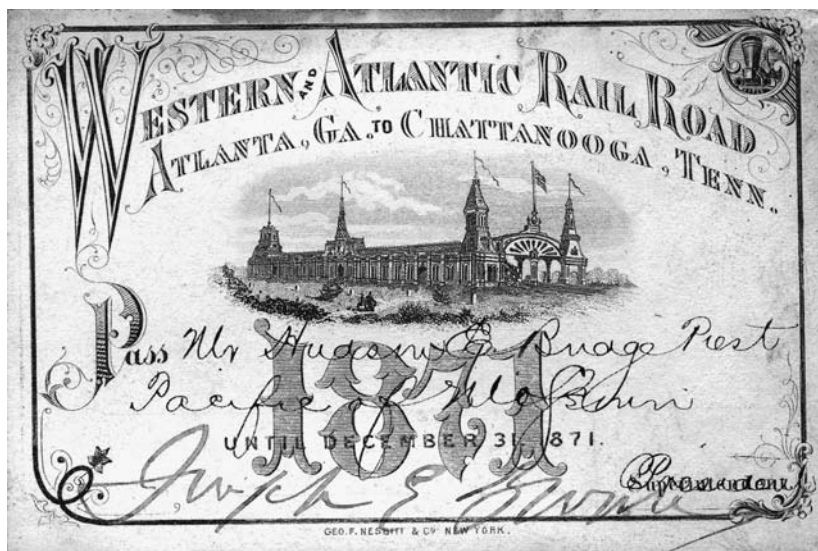 WESTERN AND ATLANTIC RAIL ROAD
ATLANTA, GA. TO CHATTANOOGA, TENN.
1871
Pass Mr Hudson E Bridge Prest
Pacific of Mo
UNTIL DECEMBER 31, 1871.
Joseph E Brown
GEO. F. NESBITT & CO NEW YORK.